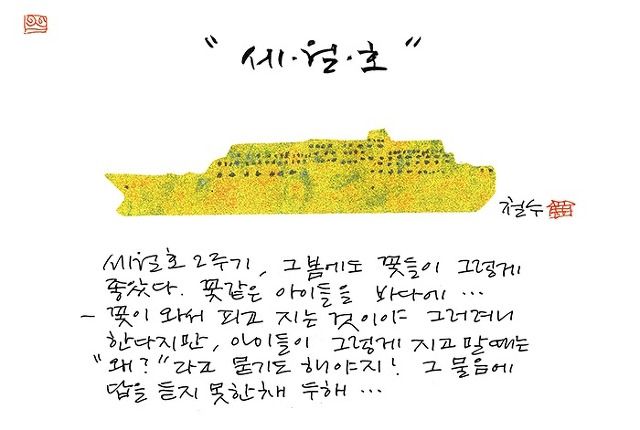 "세·월·호"
철수
세월호 2주기, 그 봄에도 꽃들이 그렇게
좋았다. 꽃같은 아이들을 바다에 …
– 꽃이 와서 피고 지는 것이야 그러려니
한다지만, 아이들이 그렇게 지고 말 때는
"왜?"라고 묻기도 해야지! 그 물음에
답을 듣지 못한채 두해 …